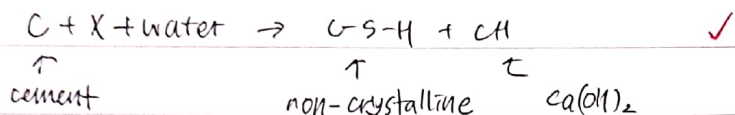 C + X + water → C-S-H + CH ✓
↑ ↑ ↑
cement non-crystalline Ca(OH)₂